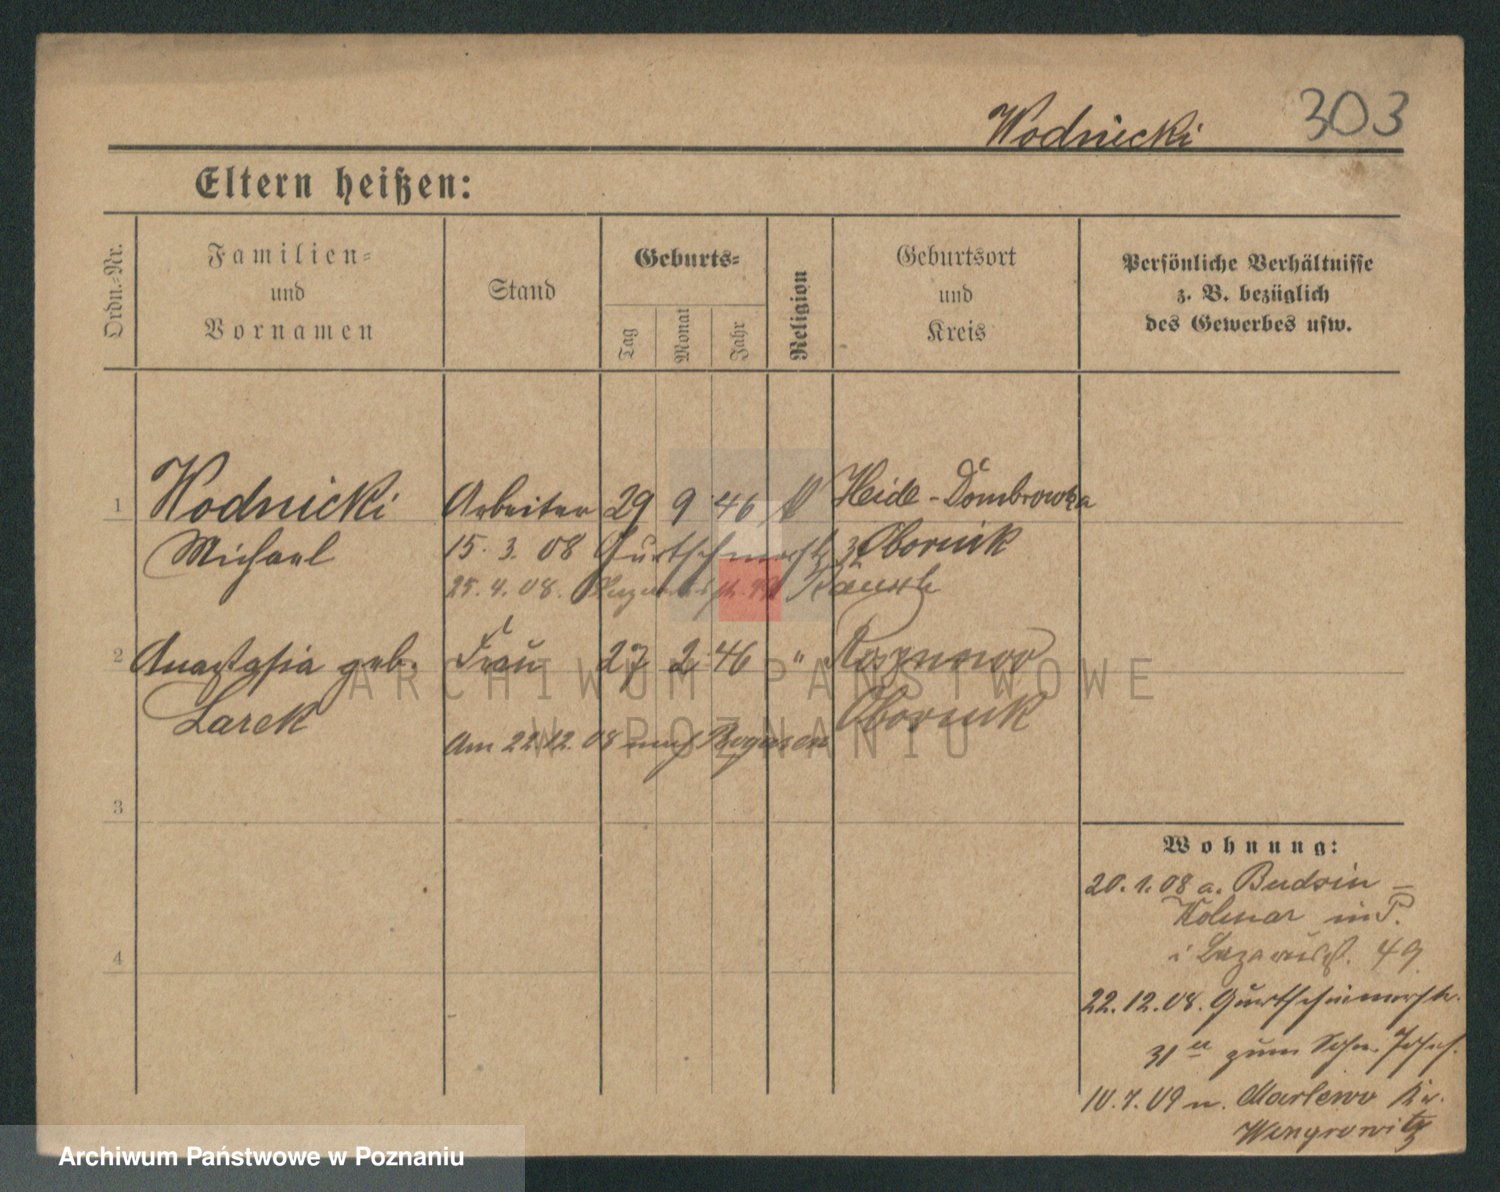 Wodniecki 303
Eltern heißen:
Ordn.-Nr.
Familien-
und
Vornamen
Stand
Geburts-
Tag
Monat
Jahr
Religion
Geburtsort
und
Kreis
Persönliche Verhältnisse
z. B. bezüglich
des Gewerbes usw.
1 Wodnicki Arbeiter 29 9 46 Heide-Dombrowka
Michael 15. 3. 08 Obornik
25. 4. 08.
2 Anastasia geb. Frau 27 2 46 "
Larek Obornik
Am 22.12. 08 nach Rogasen
3
4
Wohnung:
20. 1. 08 a. Budsin -
Kolmar in P.
Lazarusst. 49
22. 12. 08.
31 zum Sohn Josef.
10. 7. 09 n. Marlewo Kr.
Wongrowitz
ARCHIWUM PAŃSTWOWE
W POZNANIU
Archiwum Państwowe w Poznaniu